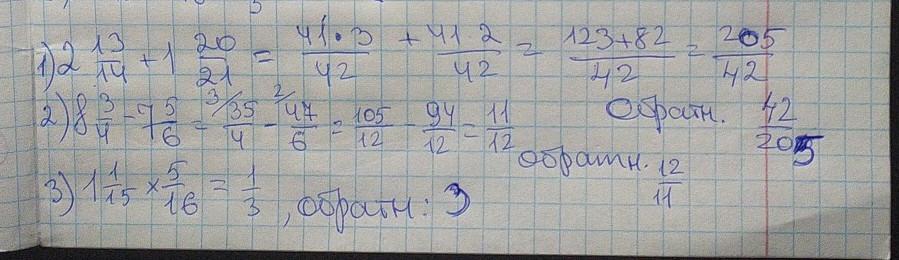 1) 2 13/14 + 1 20/21 = 41·3/42 + 41 2/42 = 123+82/42 = 205/42
Обратн. 42/205
2) 8 3/4 - 7 5/6 = 3/35/4 - 2/47/6 = 105/12 - 94/12 = 11/12
обратн. 12/11
3) 1 1/15 × 5/16 = 1/3, обратн: 3